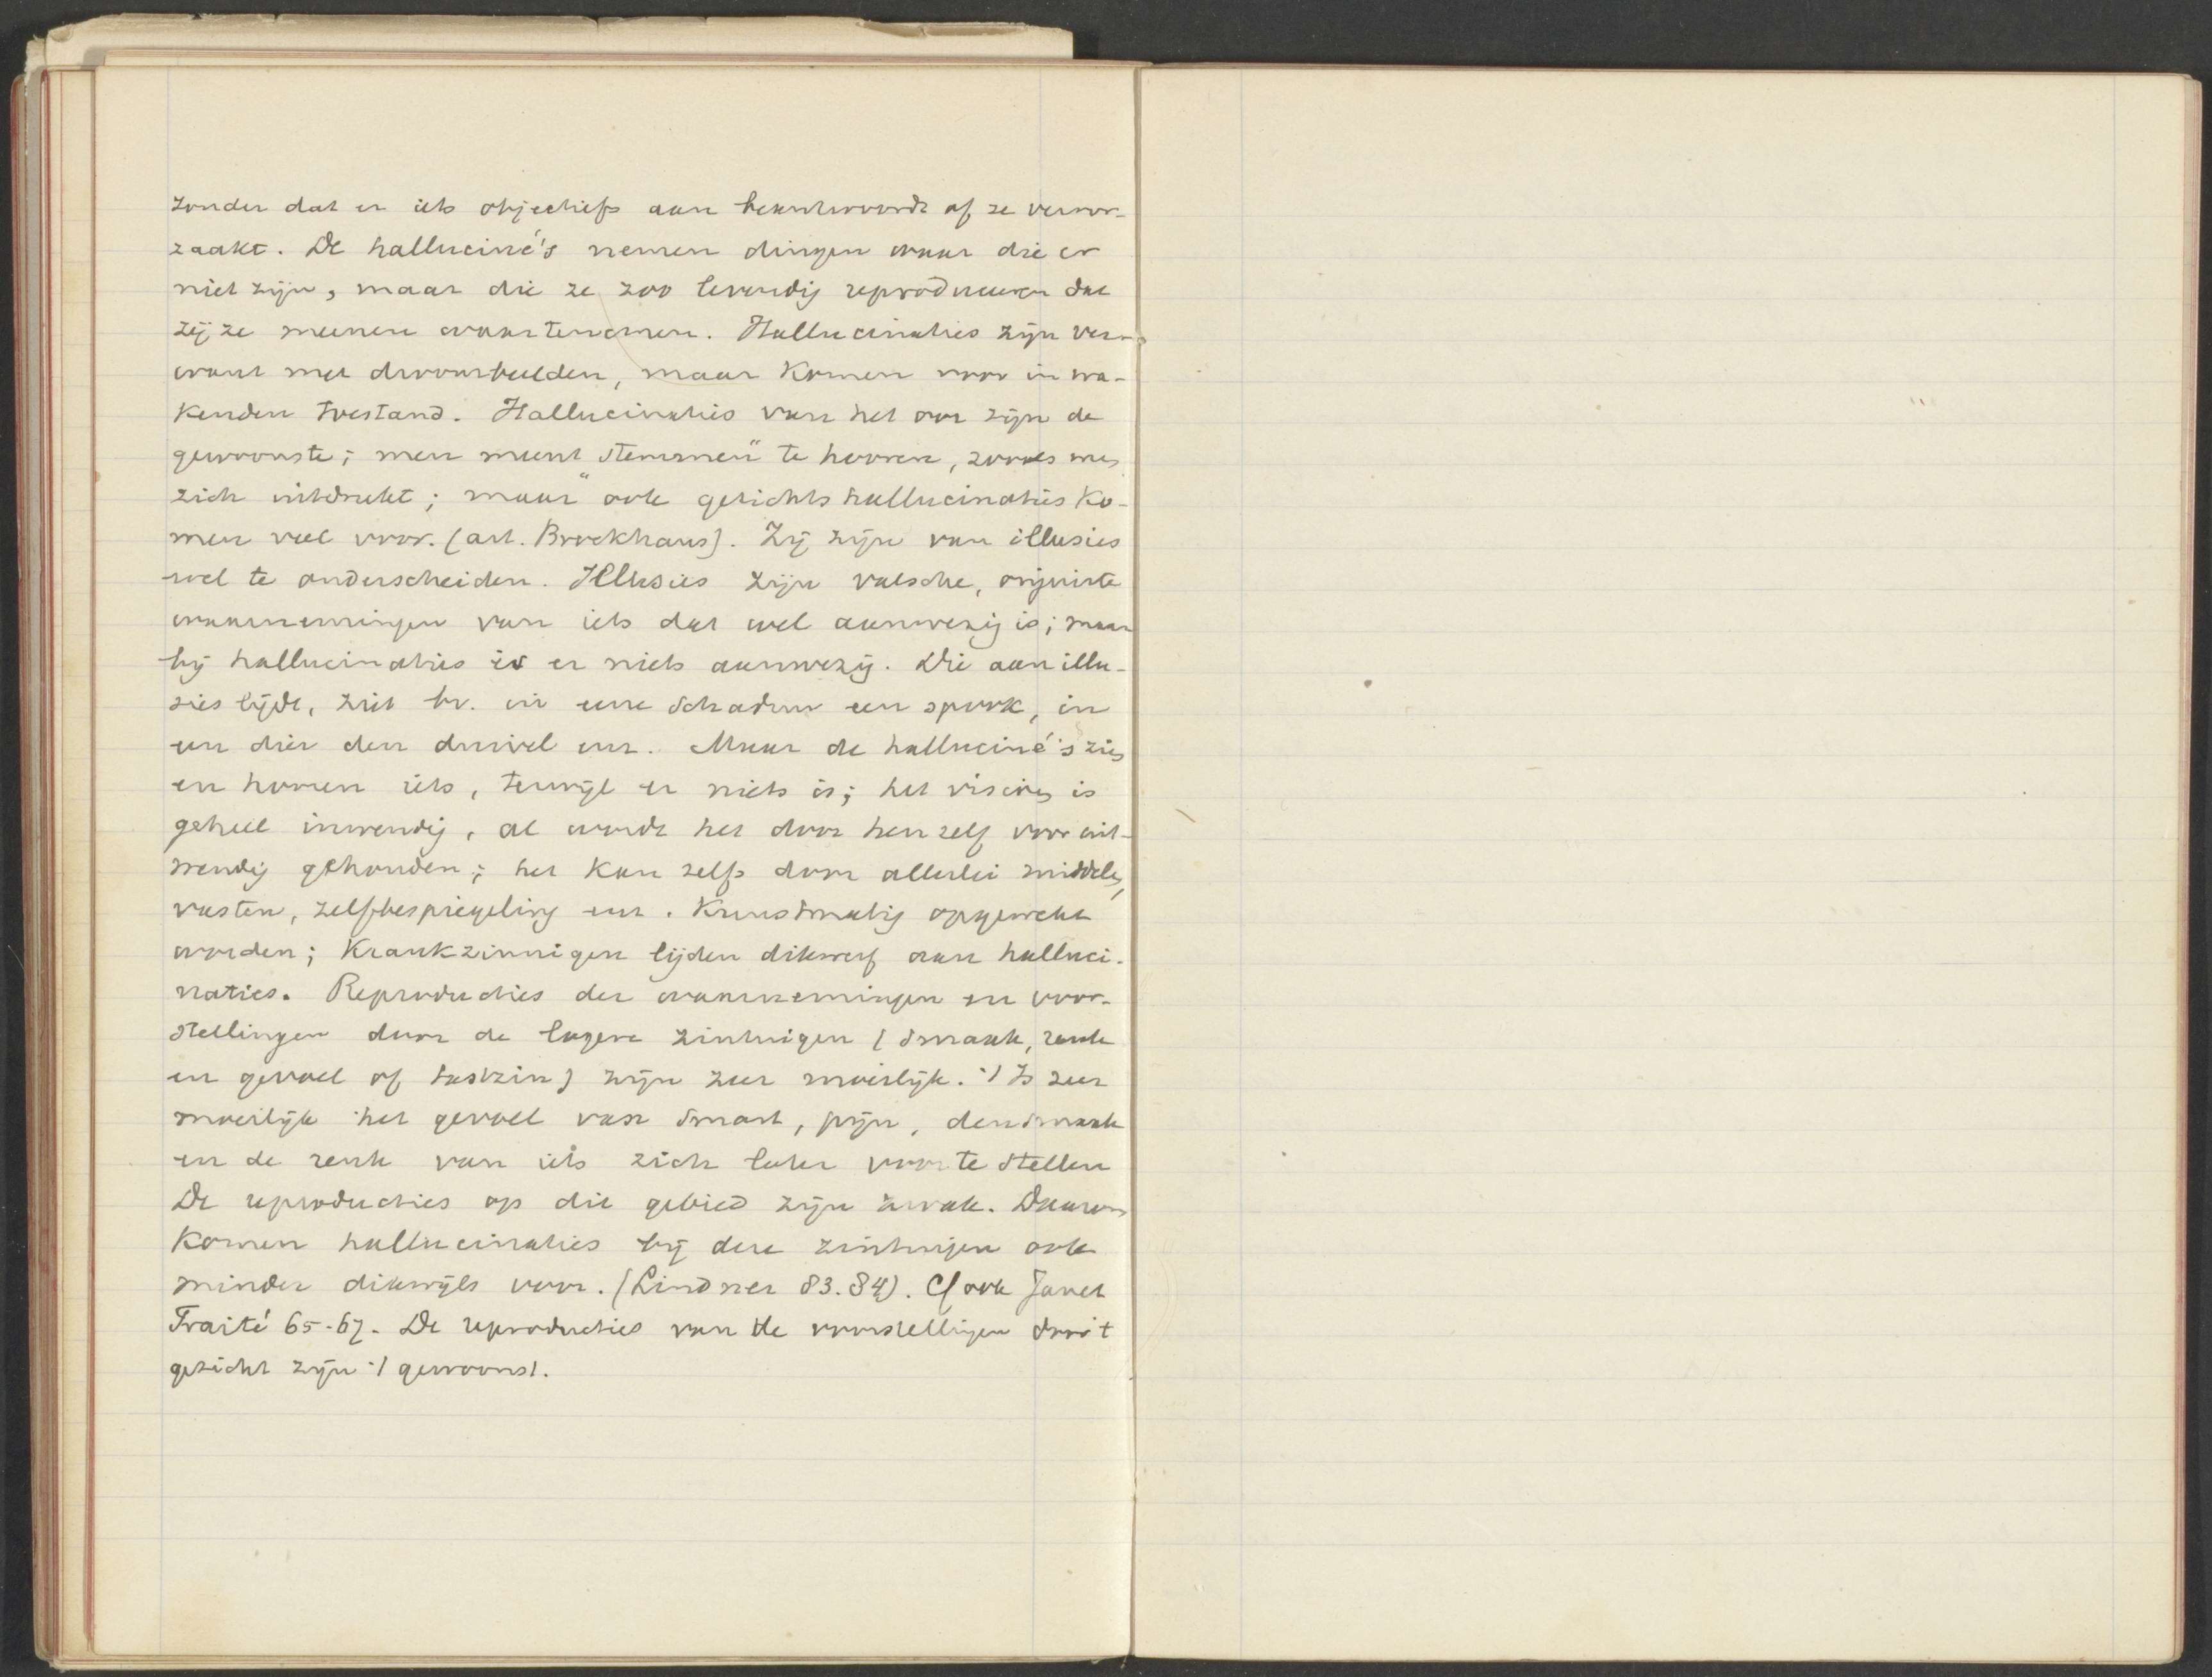 zonder dat er iets objectiefs aan beantwoordt of ze veroor-
zaakt. De halluciné's nemen dingen waar die er
niet zijn, maar die ze zoo levendig reproduceeren dat
zij ze meenen waartenemen. Hallucinaties zijn ver-
want met droombeelden, maar komen voor in wa-
kenden toestand. Hallucinaties van het oor zijn de
gewoonste; men meent „stemmen" te hooren, zooals men
zich uitdrukt; maar ook gezichtshallucinaties ko-
men veel voor. (art. Brockhaus). Zij zijn van illusies
wel te onderscheiden. Illusies zijn valsche, onjuiste
waarnemingen van iets dat wel aanwezig is; maar
bij hallucinaties is er niets aanwezig. Die aan illu-
sies lijdt, ziet bv. in eene schaduw een spook, in
een dier den duivel enz. Maar de halluciné's zien
en hooren iets, terwijl er niets is; het visioen is
geheel inwendig, al wordt het door hen zelf voor uit-
wendig gehouden; het kan zelfs door allerlei middelen,
vasten, zelfbespiegeling enz. kunstmatig opgewekt
worden; krankzinnigen lijden dikwerf aan halluci-
naties. Reproducties der waarnemingen en voor-
stellingen door de lagere zintuigen (smaak, reuk
en gevoel of tastzin) zijn zeer moeilijk. 't Is zeer
moeilijk het gevoel van smart, pijn, den smaak
en de reuk van iets zich later voor te stellen
De reproducties op dit gebied zijn zwak. Daarom
komen hallucinaties bij deze zintuigen ook
minder dikwijls voor. (Lindner 83.84). Cf ook Janet
Traité 65-67. De reproducties van de voorstellingen door 't
gezicht zijn 't gewoonst.